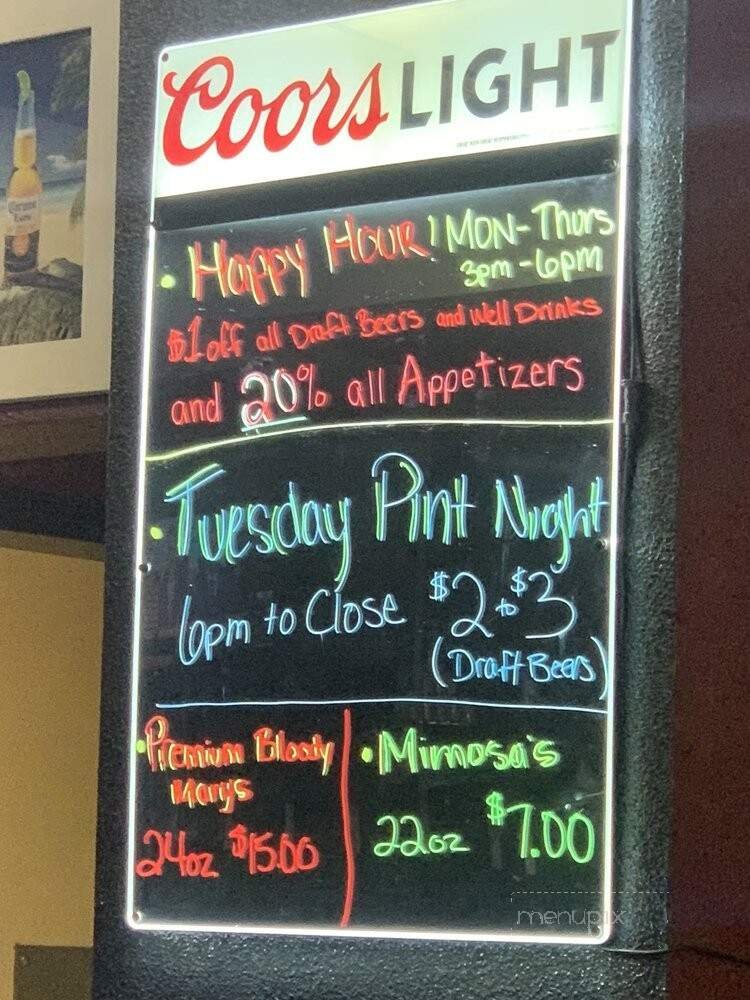 Coors LIGHT
• Happy Hour! MON-Thurs
3pm-6pm
$1 off all Draft Beers and Well Drinks
and 20% all Appetizers
• Tuesday Pint Night
6pm to Close $2 to $3
(Draft Beers)
• Premium Bloody
Mary's
24oz $15.00
• Mimosa's
22oz $7.00
Corona
Extra
menupix